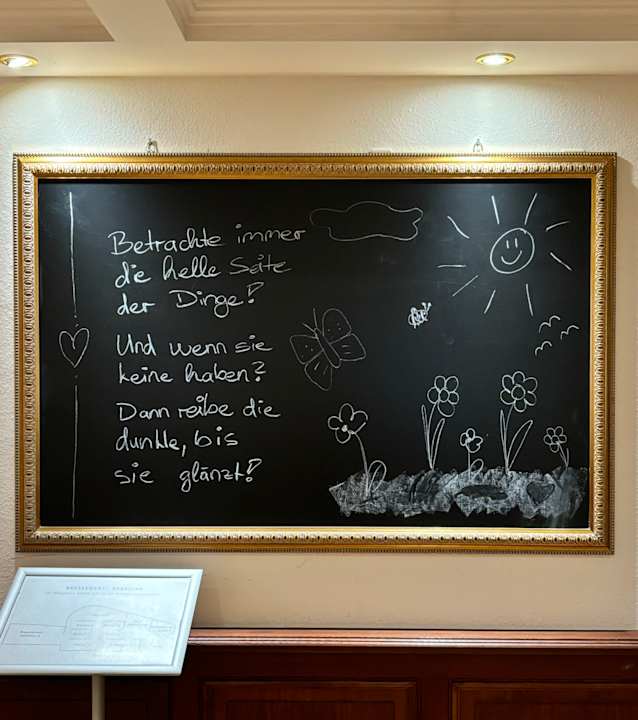 Betrachte immer
die helle Seite
der Dinge!
Und wenn sie
keine haben?
Dann reibe die
dunkle, bis
sie glänzt!